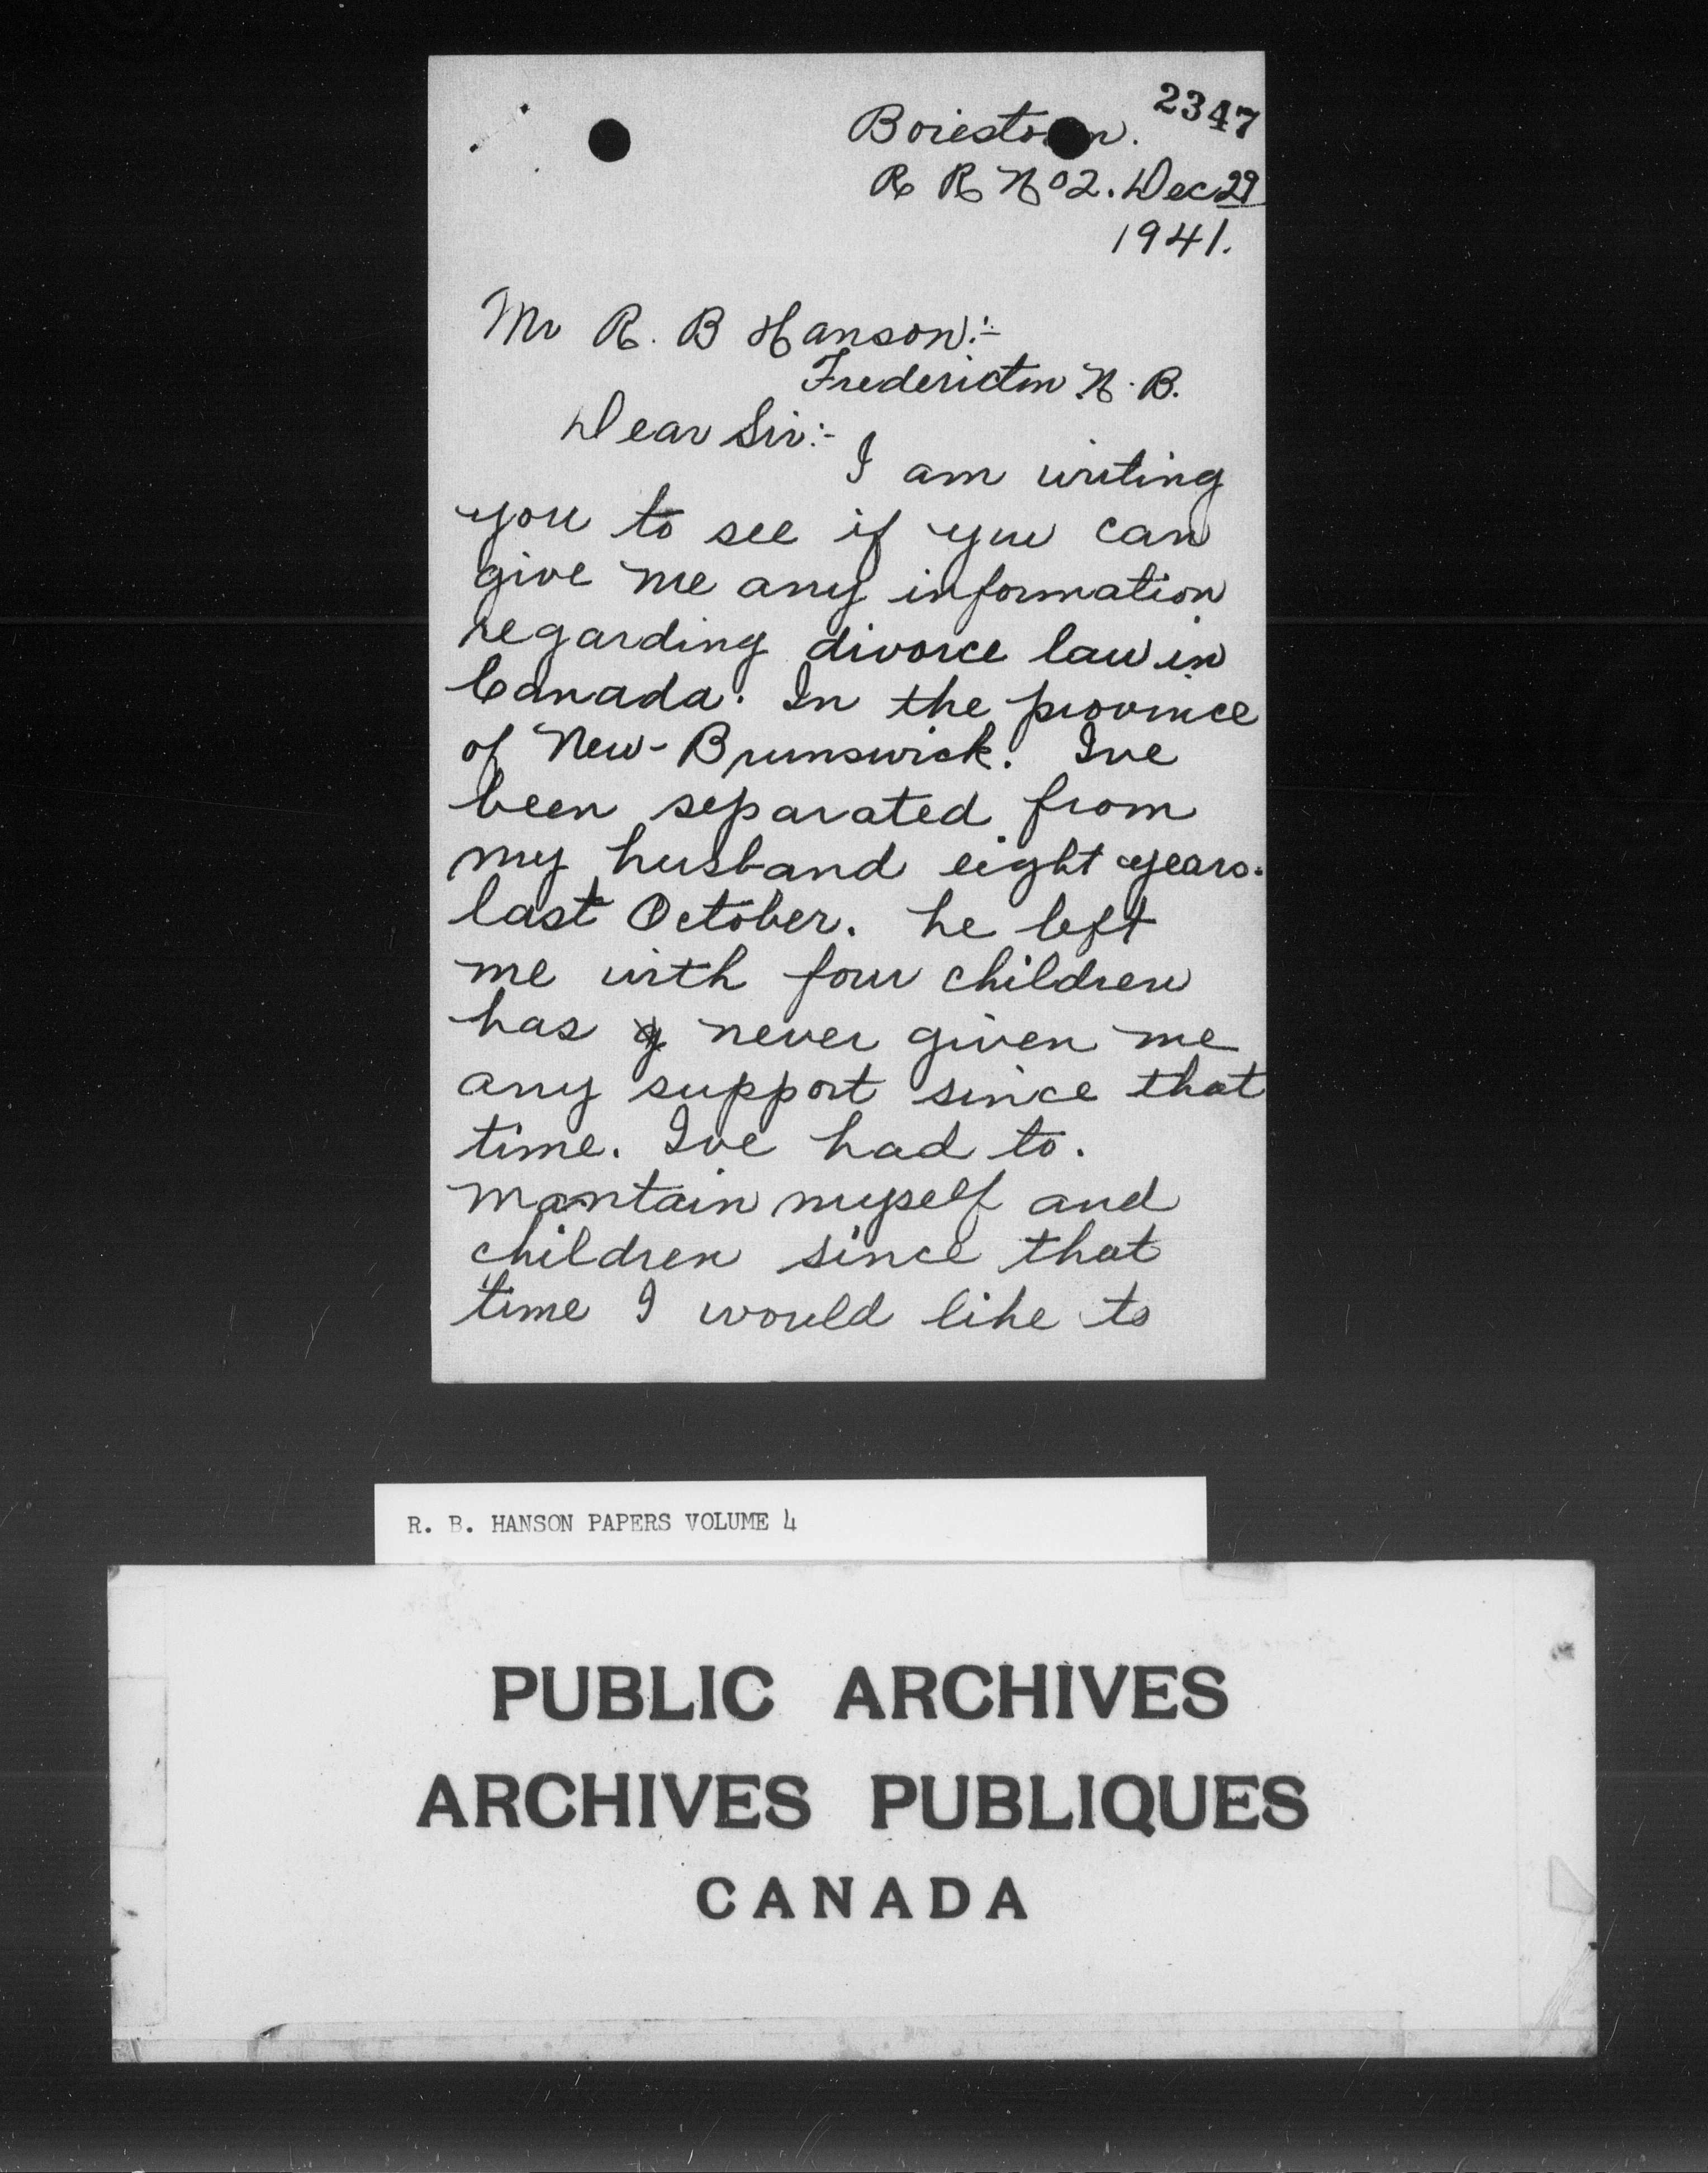 2347
Boiestown.
R R No 2. Dec 29
1941.
Mr R. B Hanson:-
Fredericton N. B.
Dear Sir:-
I am writing
you to see if you can
give me any information
regarding divorce law in
Canada. In the province
of New-Brunswick. Ive
been separated from
my husband eight years.
last October. he left
me with four children
has never given me
any support since that
time. Ive had to.
mantain myself and
children since that
time I would like to
R. B. HANSON PAPERS VOLUME 4
PUBLIC ARCHIVES
ARCHIVES PUBLIQUES
CANADA